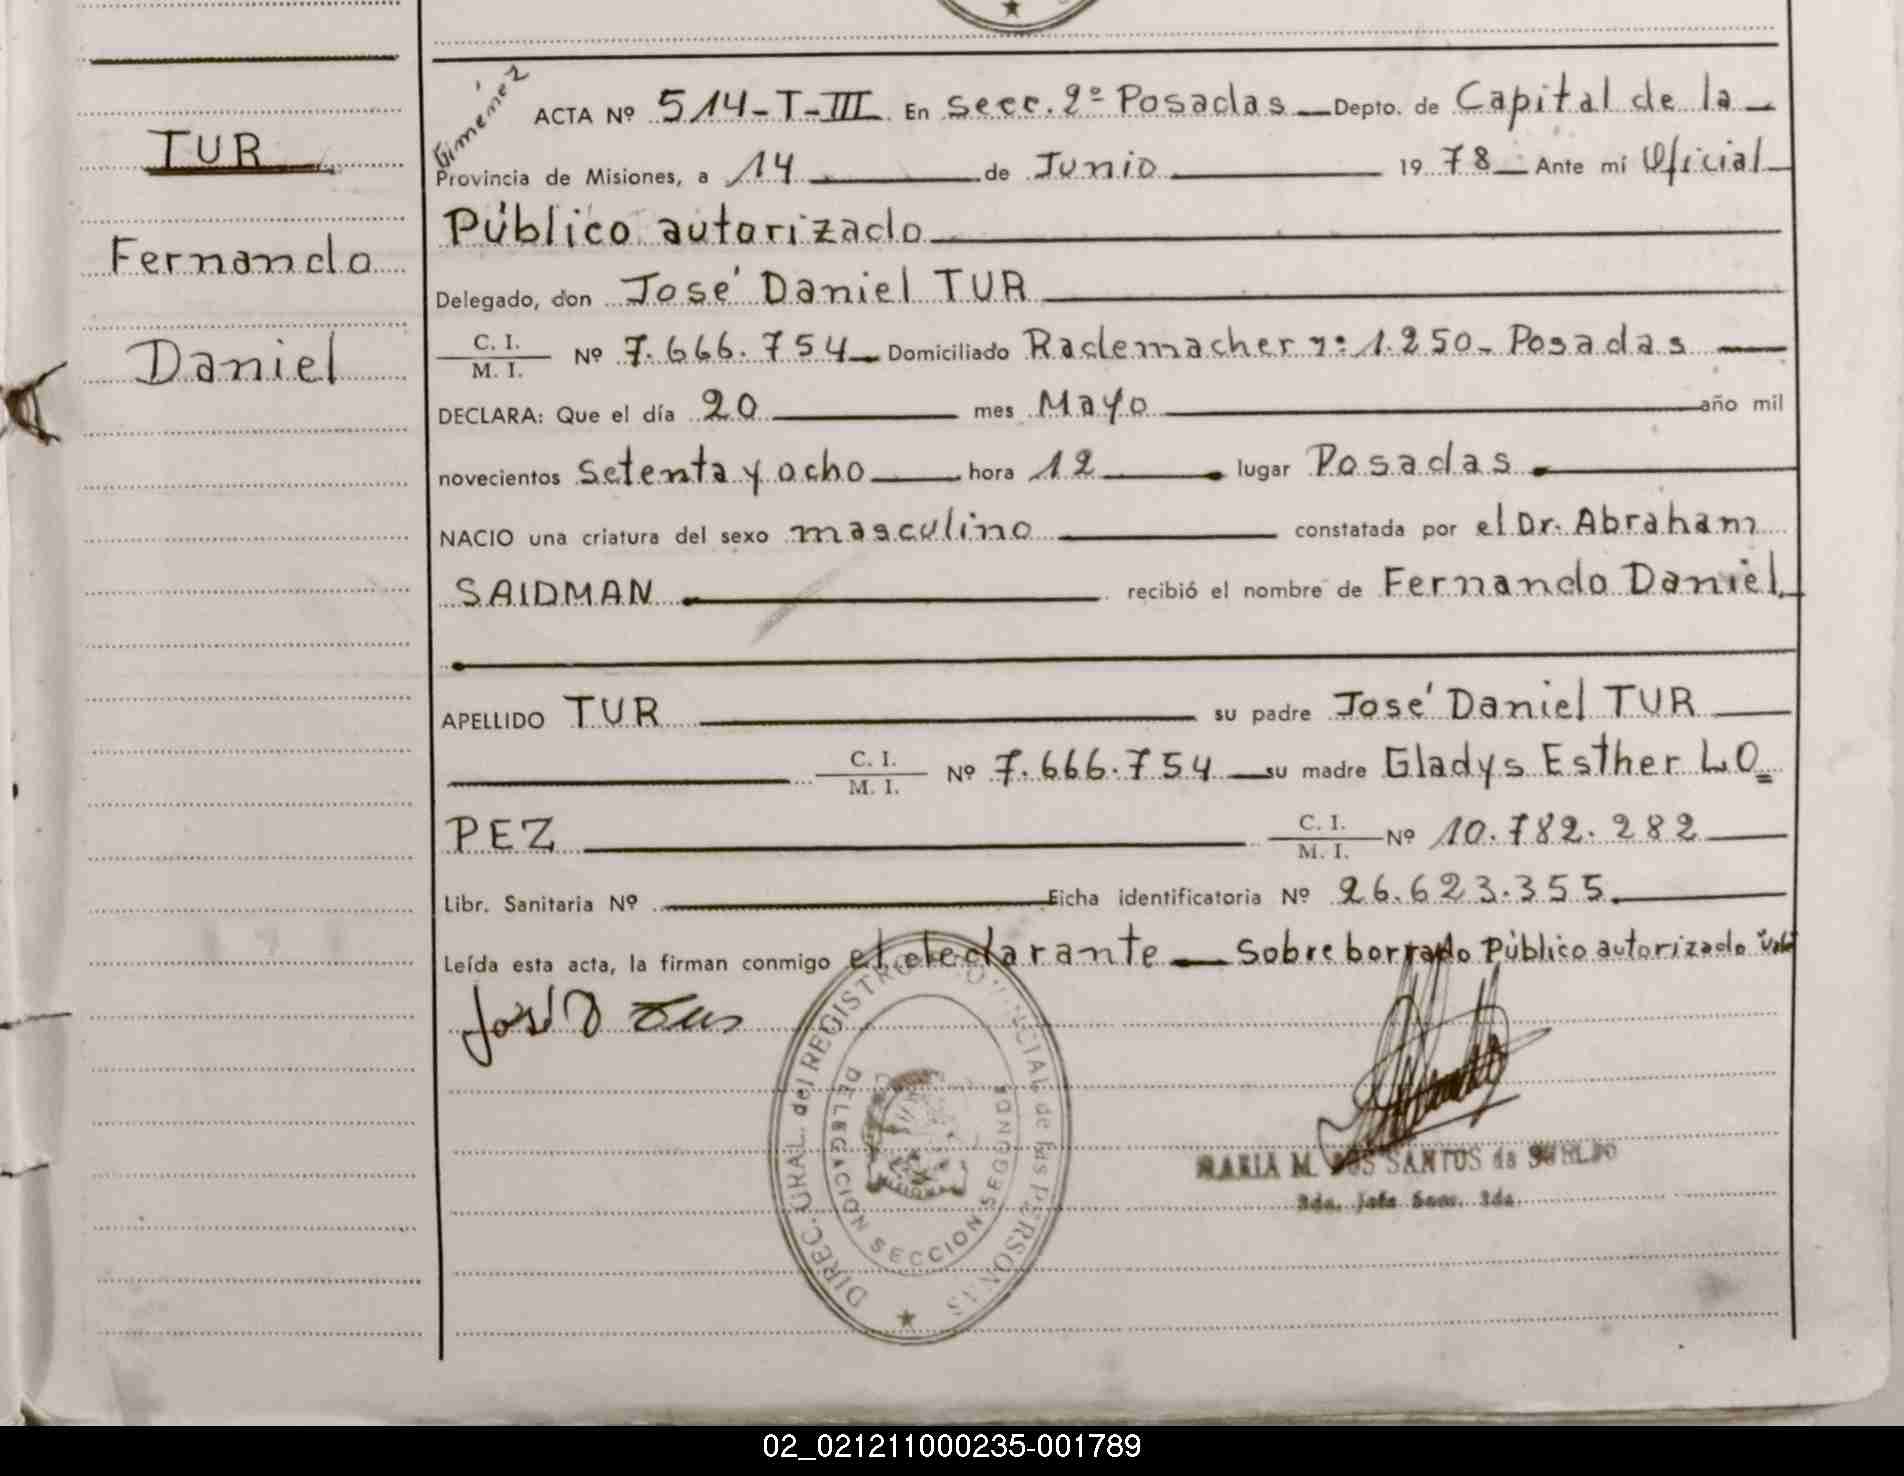 TUR
Fernando
Daniel
Giménez
ACTA Nº 514-T-III En Secc. 2º Posadas Depto. de Capital de la
Provincia de Misiones, a 14 de Junio 1978 Ante mí Oficial
Público autorizado
Delegado, don José Daniel TUR
C. I.
M. I. Nº 7.666.754 Domiciliado Rademacher nº 1.250- Posadas
DECLARA: Que el día 20 mes Mayo año mil
novecientos Setenta y ocho hora 12 lugar Posadas
NACIO una criatura del sexo masculino constatada por el Dr. Abraham
SAIDMAN recibió el nombre de Fernando Daniel
APELLIDO TUR su padre José Daniel TUR
C. I.
M. I. Nº 7.666.754 su madre Gladys Esther LO=
PEZ C. I.
M. I. Nº 10.782.282
Libr. Sanitaria Nº Ficha identificatoria Nº 26.623.355
Leída esta acta, la firman conmigo el declarante Sobre borrado Público autorizado "vale"
José D Tur
DIREC. GRAL. del REGISTRO PROVINCIAL de las PERSONAS
DELEGACION SECCION SEGUNDA
MARIA M. DOS SANTOS de SUELDO
2da. Jefe Secc. 2da.
02_021211000235-001789